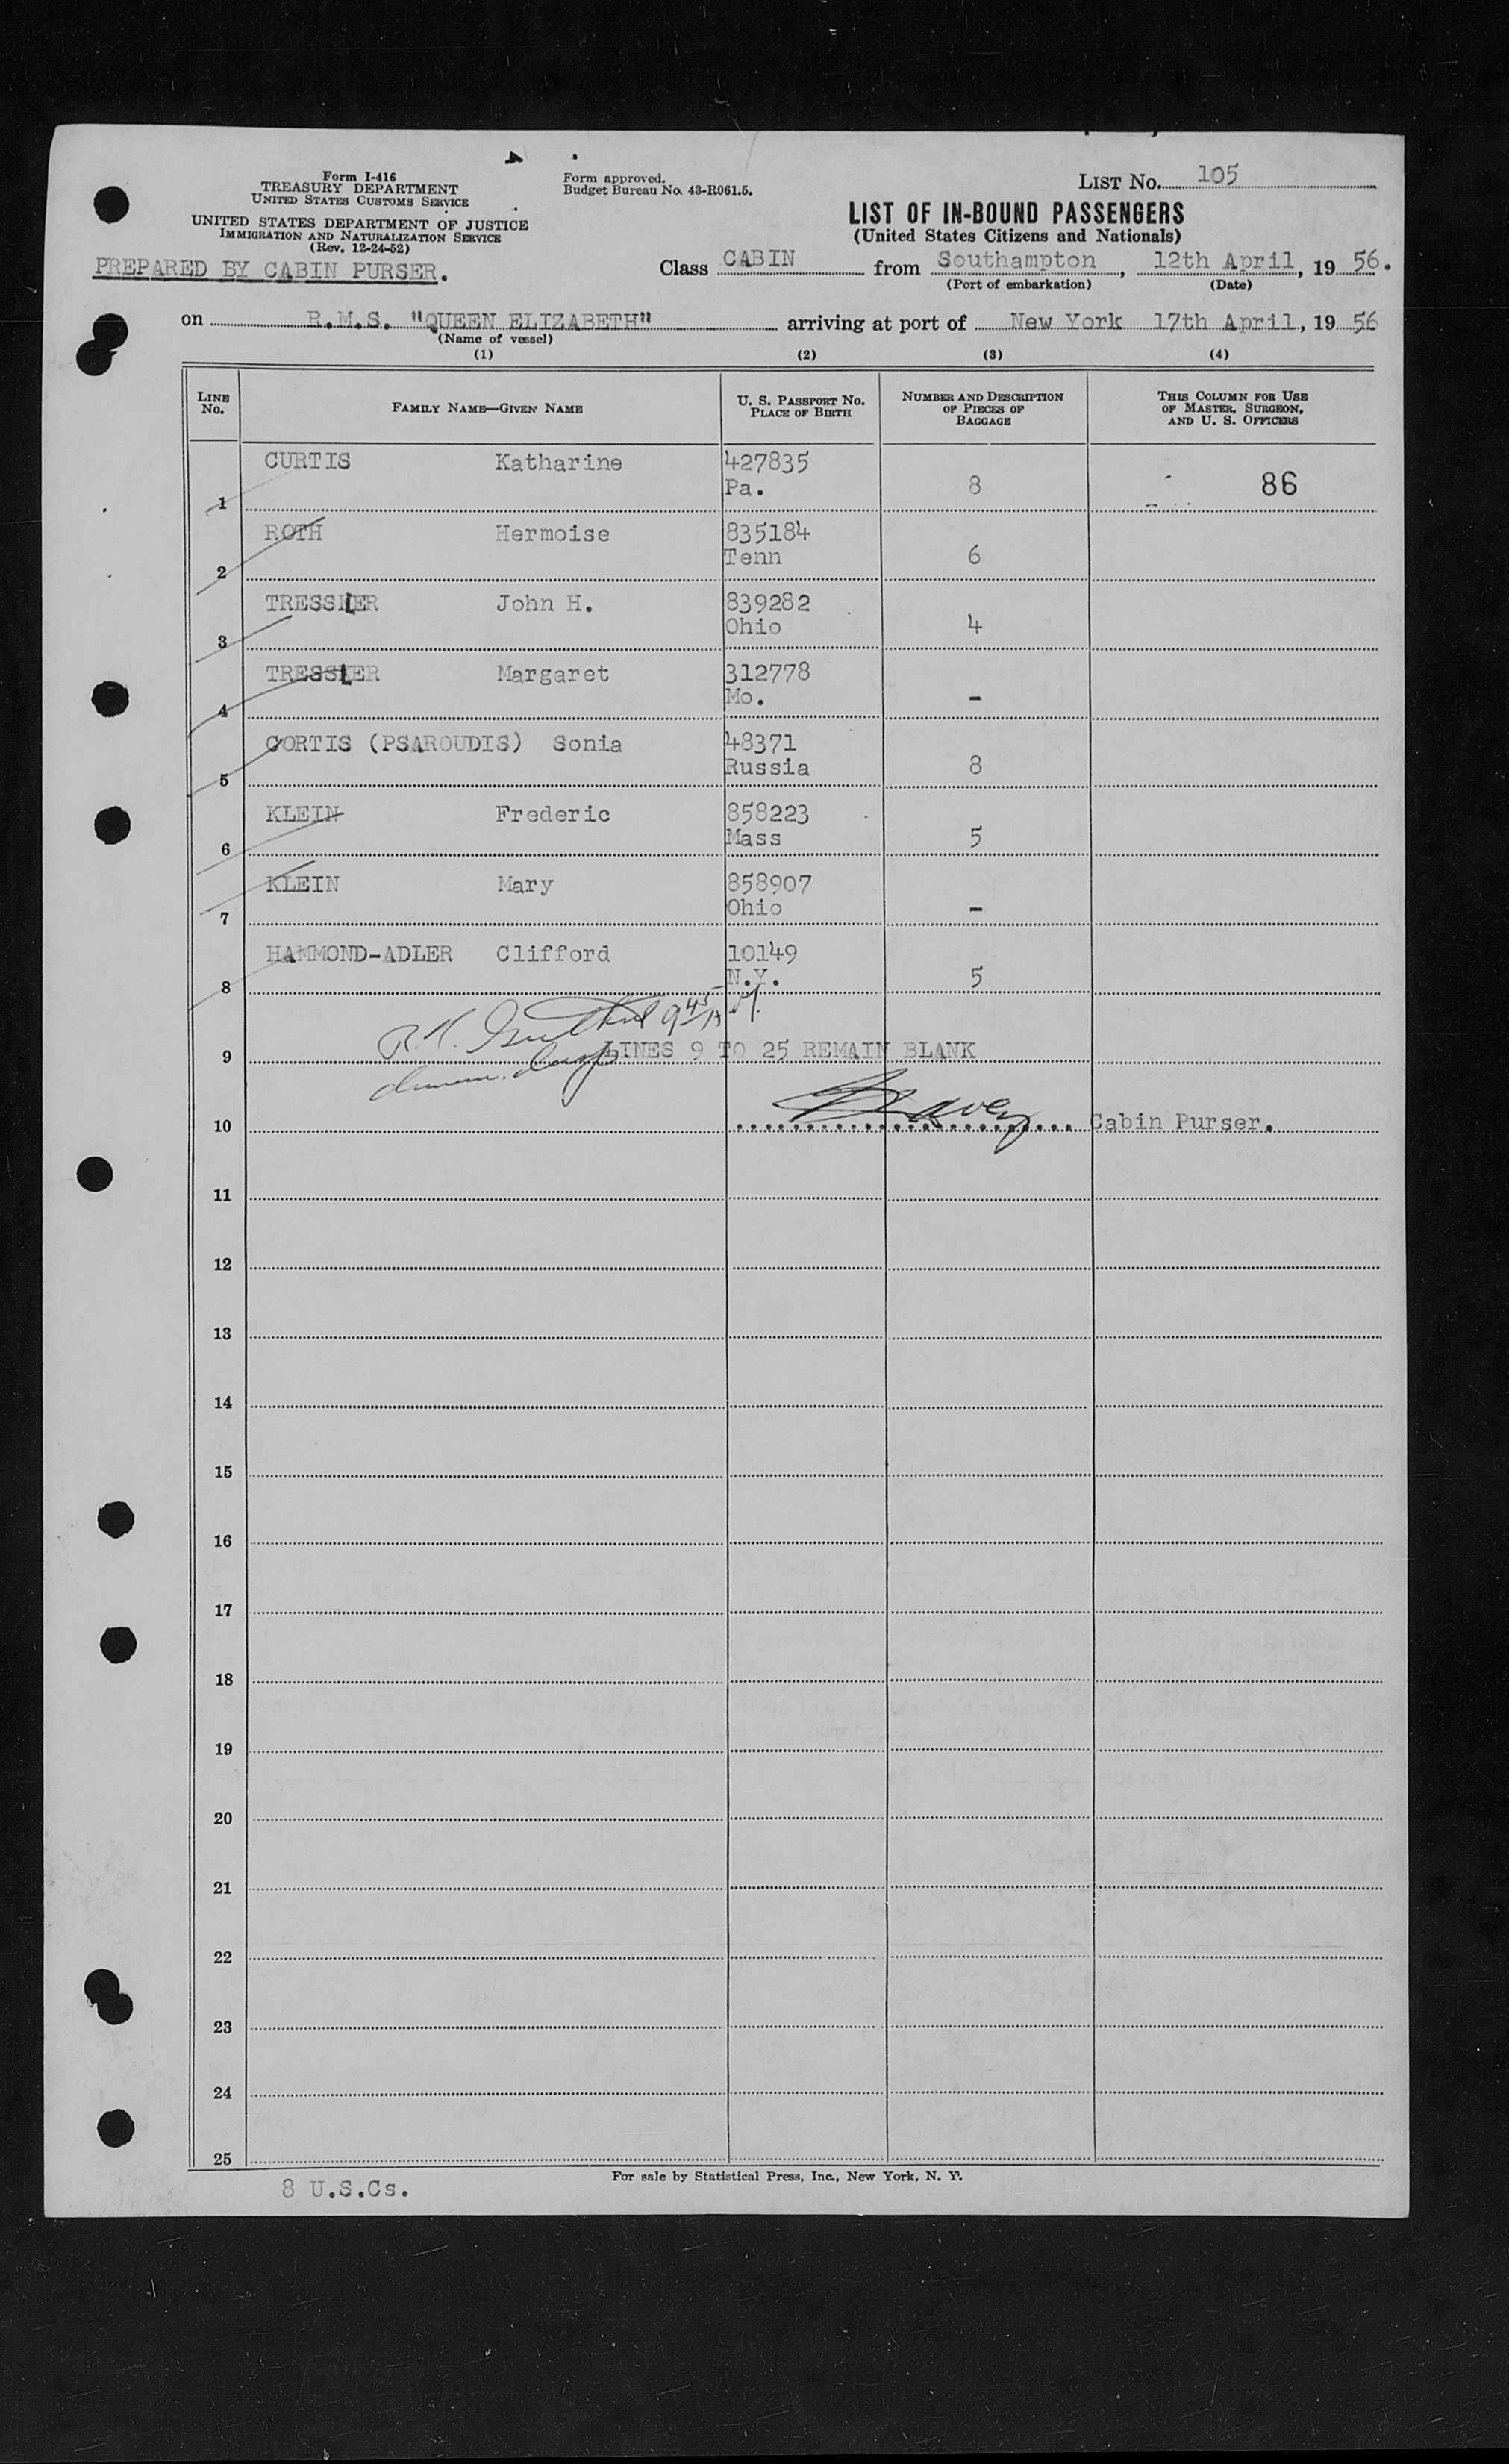 Form I-416
TREASURY DEPARTMENT
UNITED STATES CUSTOMS SERVICE
UNITED STATES DEPARTMENT OF JUSTICE
IMMIGRATION AND NATURALIZATION SERVICE
(Rev. 12-24-52)
PREPARED BY CABIN PURSER.
Form approved.
Budget Bureau No. 43-R061.5.
LIST No. 105
LIST OF IN-BOUND PASSENGERS
(United States Citizens and Nationals)
Class CABIN from Southampton, 12th April, 19 56.
(Port of embarkation) (Date)
on R.M.S. "QUEEN ELIZABETH" arriving at port of New York 17th April, 19 56
(Name of vessel)
(1) (2) (3) (4)
LINE No. FAMILY NAME—GIVEN NAME U. S. PASSPORT No. PLACE OF BIRTH NUMBER AND DESCRIPTION OF PIECES OF BAGGAGE THIS COLUMN FOR USE OF MASTER, SURGEON, AND U. S. OFFICERS
CURTIS Katharine 427835
1 Pa. 8 86
ROTH Hermoise 835184
2 Tenn 6
TRESSLER John H. 839282
3 Ohio 4
TRESSLER Margaret 312778
4 Mo. -
CORTIS (PSAROUDIS) Sonia 48371
5 Russia 8
KLEIN Frederic 858223
6 Mass 5
KLEIN Mary 858907
7 Ohio -
HAMMOND-ADLER Clifford 10149
8 N.Y. 5
9 LINES 9 TO 25 REMAIN BLANK
10 Cabin Purser.
11
12
13
14
15
16
17
18
19
20
21
22
23
24
25
For sale by Statistical Press, Inc., New York, N. Y.
8 U.S.Cs.